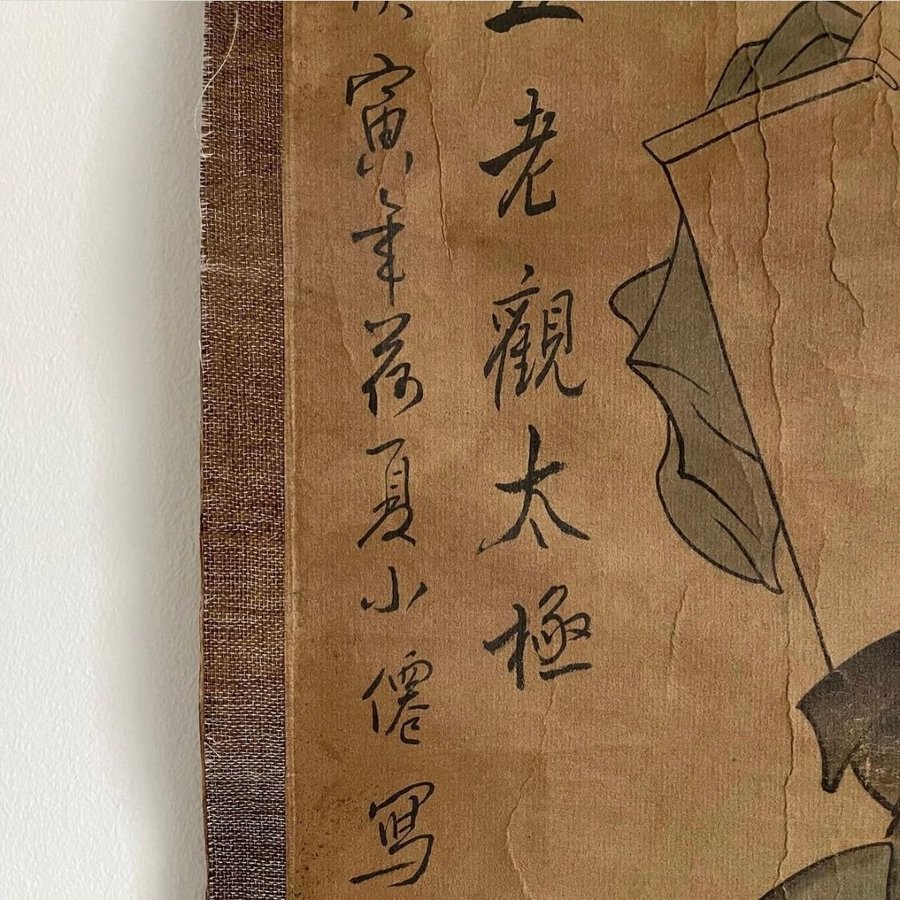 五老觀太極
寅年荷夏小僊寫